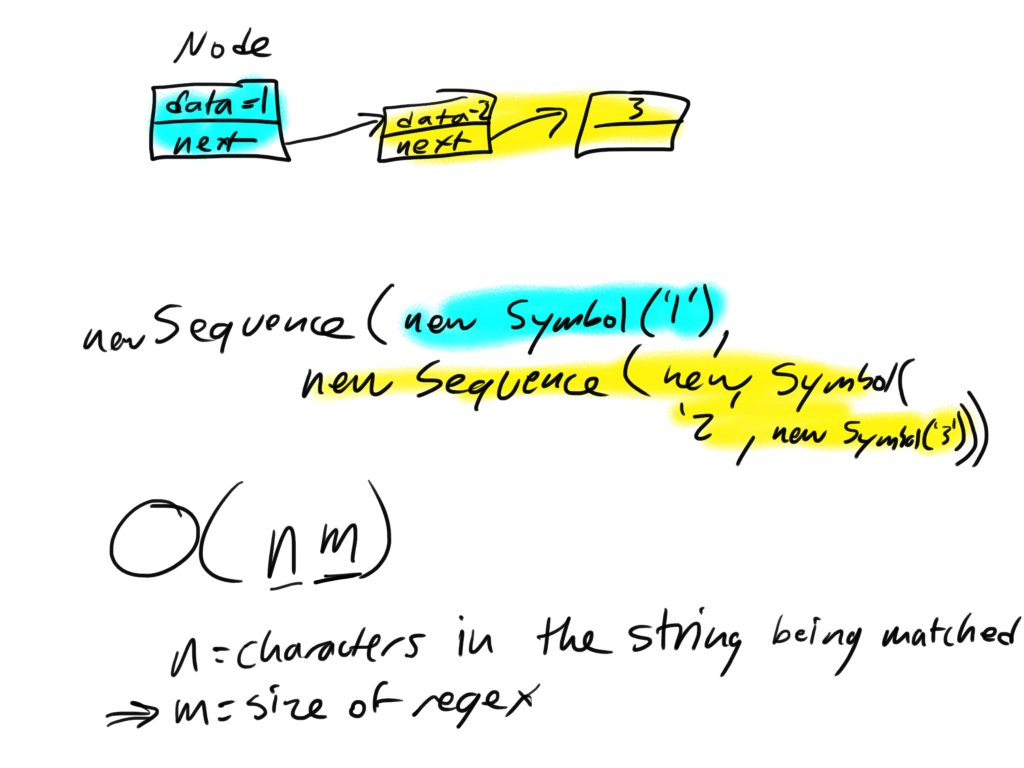 Node
data=1
next
data=2
next
3
new Sequence(new Symbol('1'),
new Sequence(new Symbol(
'2, new Symbol('3')))
O(nm)
n=characters in the string being matched
⇒ m=size of regex